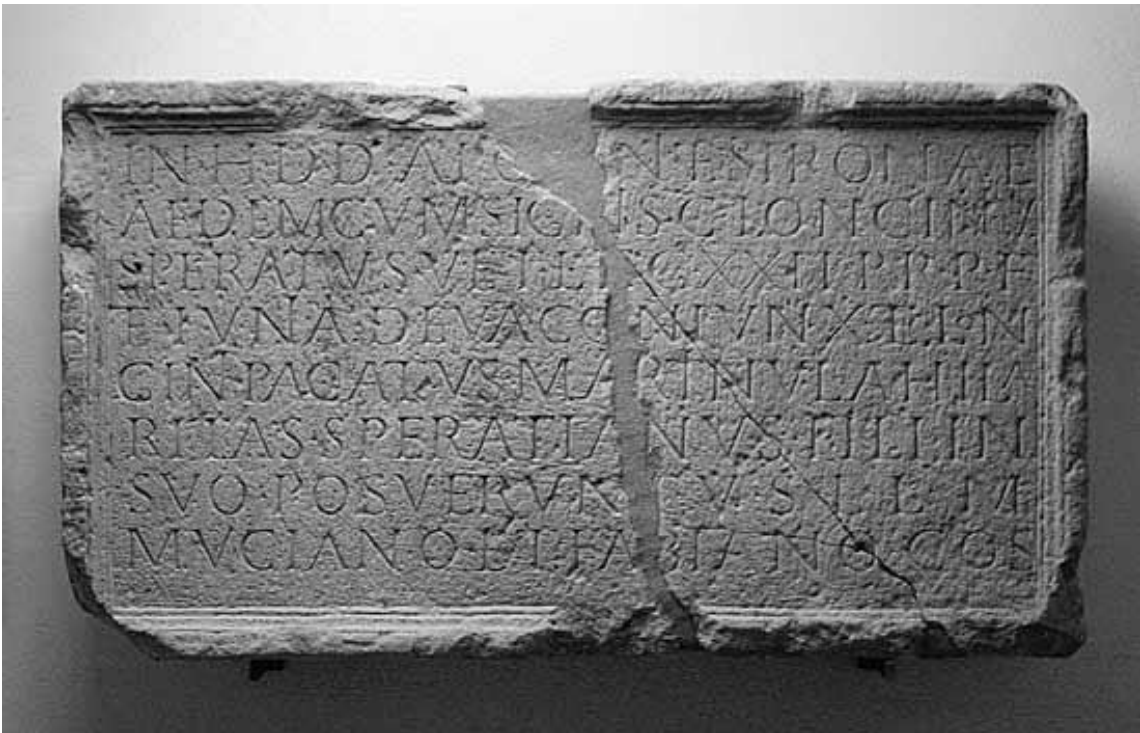 IN·H·D·D·APO NI·ET·SIRONAE
AEDEM·CVM·SIGNIS·C·LONGINIVS
SPERATVS·VET·LEG·XXII·PR·P·F
ET·IVNIA·DEVA·CONIVNX·ET·LON
GINI·PACATVS·MARTINVLA·HILA
RITAS·SPERATIANVS·FILII·IN
SVO·POSVERVNT·V·S·L·L·M
MVCIANO·ET·FABIANO·COS